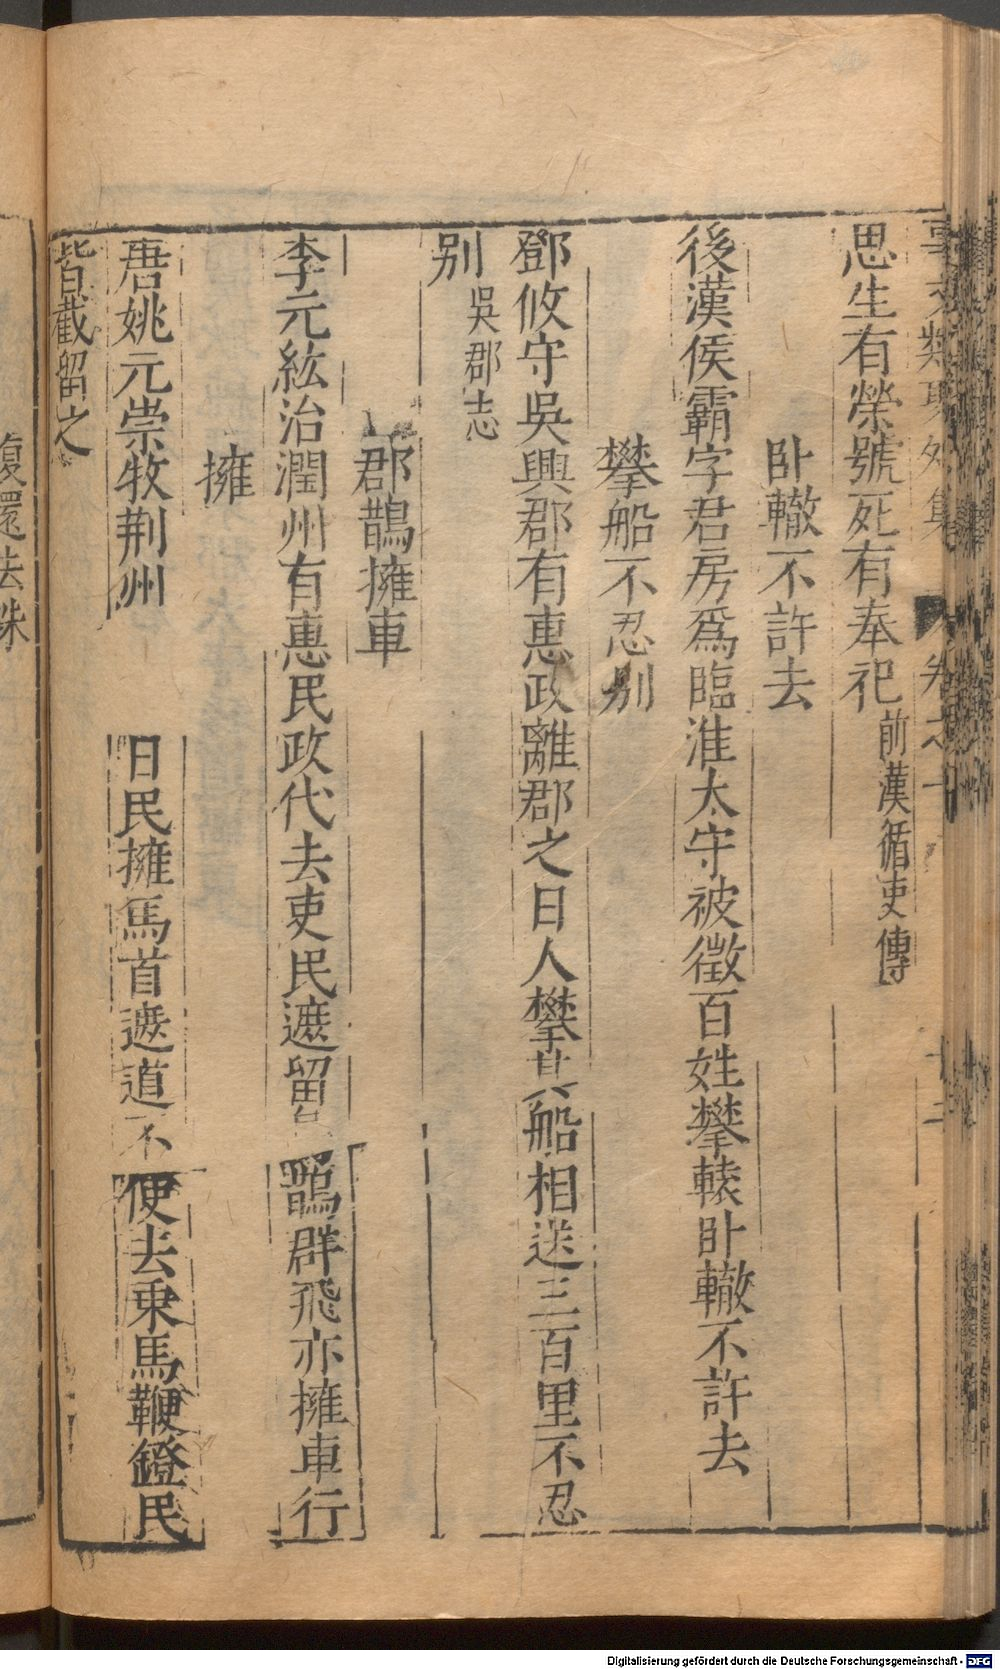 事文類聚外集
卷之十
十二
思生有榮號死有奉祀前漢循吏傳
卧轍不許去
後漢侯霸字君房爲臨淮太守被徵百姓攀轅卧轍不許去
攀船不忍别
鄧攸守吳興郡有惠政離郡之日人攀其船相送三百里不忍
别吳郡志
郡鵲擁車
李元紘治潤州有惠民政代去吏民遮留烏鵲群飛亦擁車行
擁
唐姚元崇牧荆州 日民擁馬首遮道不 便去乗馬鞭鐙民
皆截留之
復還去珠
Digitalisierung gefördert durch die Deutsche Forschungsgemeinschaft - DFG